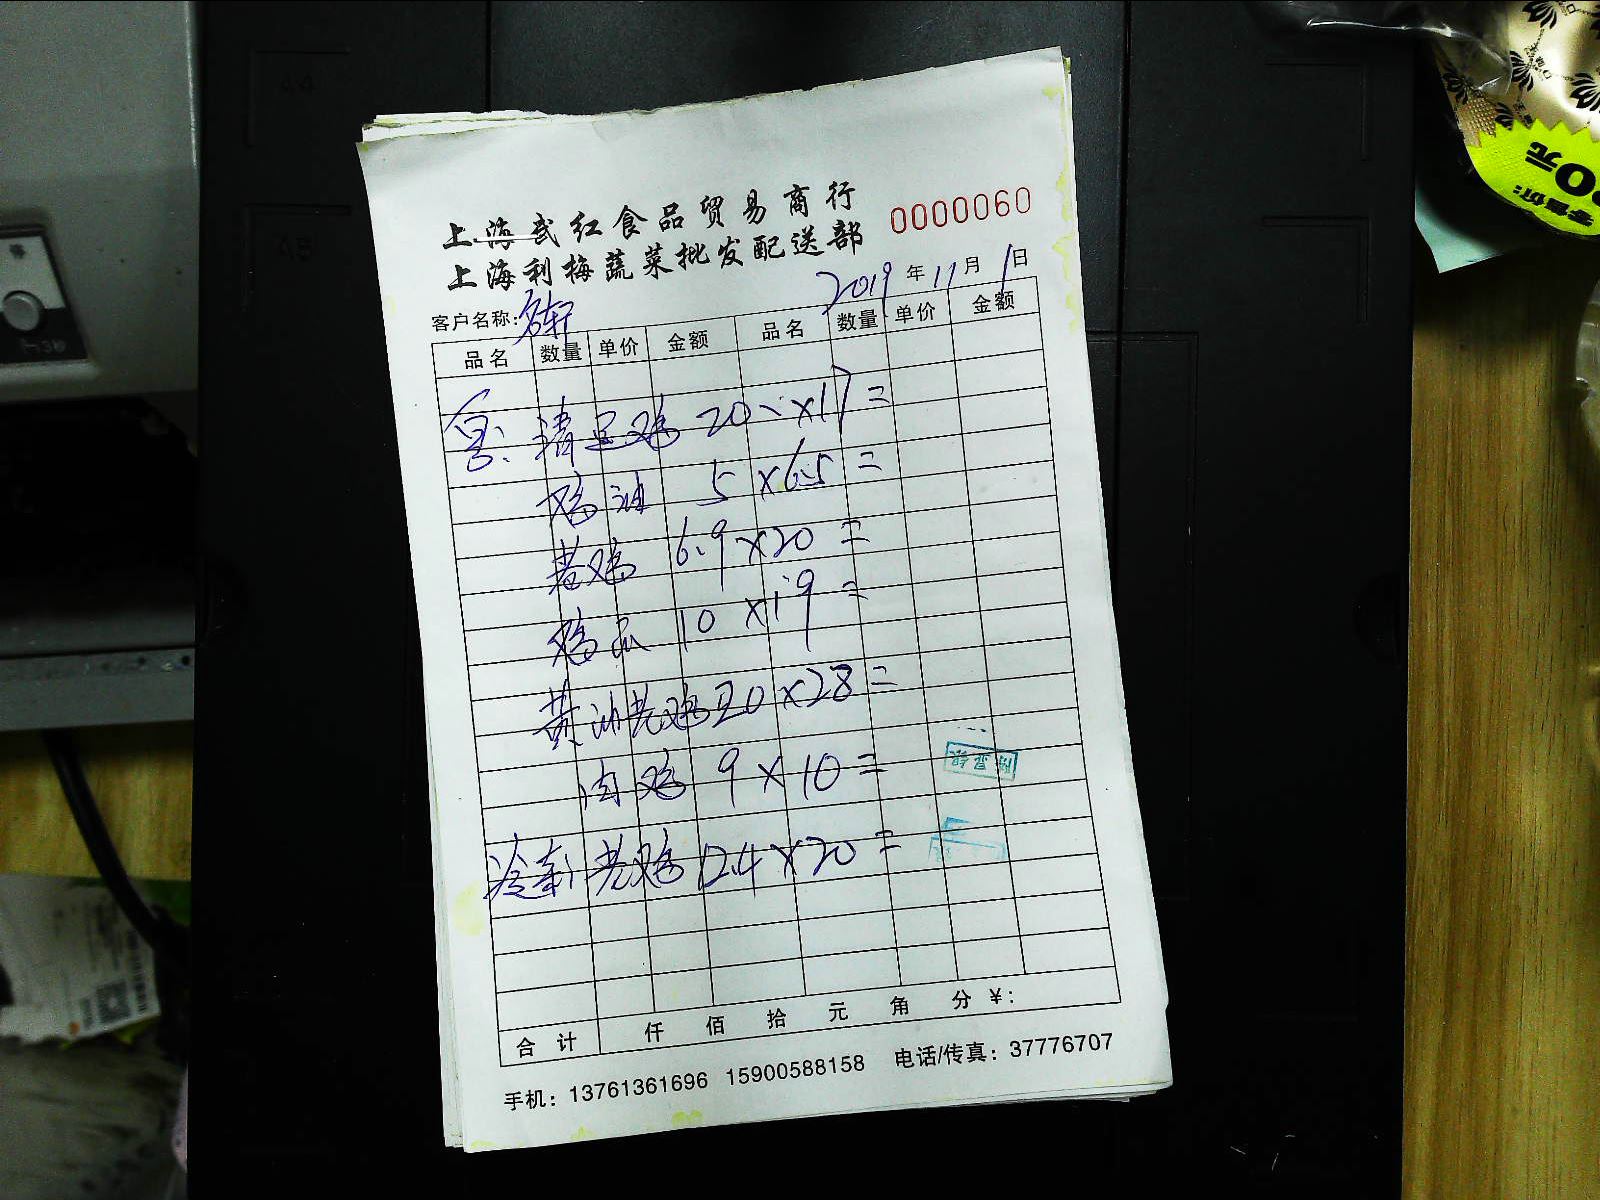 上海武红食品贸易商行
0000060
上海利梅蔬菜批发配送部
客户名称:
2019年11月1日
品名 数量 单价 金额 品名 数量 单价 金额
清远鸡 20 ×17=
鸡油 5×6.5=
老鸡 6.9×20=
鸡爪 10×19=
黄油老鸡 20×28=
肉鸡 9×10=
老鸡 12.4×20=
合计 仟 佰 拾 元 角 分 ¥:
手机: 13761361696 15900588158 电话/传真: 37776707
零售价:
0元